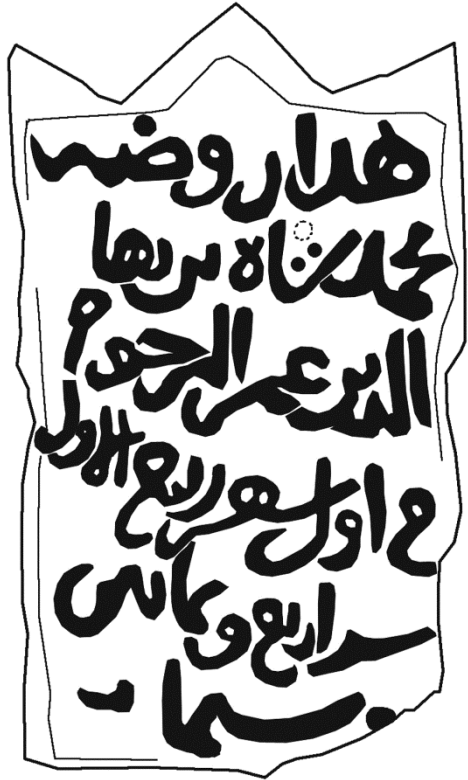 هدا روضه
محمد شاه بن بها
الدين عمر المرحوم
في اول شهر ربيع الاول
سنه اربع وثمانين